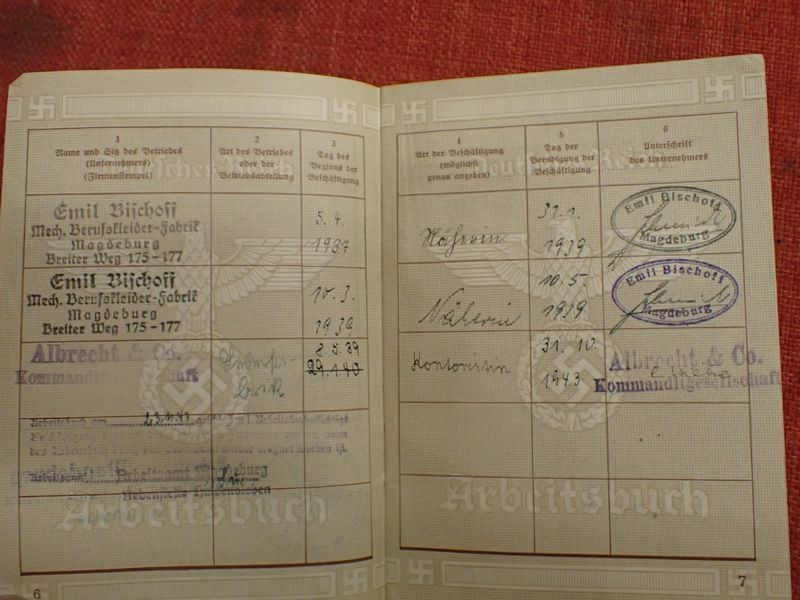 1
Name und Sitz des Betriebes
(Unternehmers)
(Firmenstempel)
2
Art des Betriebes
oder der
Betriebsabteilung
3
Tag des
Beginns der
Beschäftigung
Emil Bischoff
Mech. Berufskleider-Fabrik
Magdeburg
Breiter Weg 175-177
5. 4.
1937
Emil Bischoff
Mech. Berufskleider-Fabrik
Magdeburg
Breiter Weg 175-177
10. 3.
1939
Albrecht & Co.
Kommanditgesellschaft
8. 5. 39
29.1.40
Arbeitsbuch am
Arbeitsamt Magdeburg
Nebenstelle Haldensleben
Arbeitsbuch
6
4
Art der Beschäftigung
(möglichst
genau angeben)
5
Tag der
Beendigung der
Beschäftigung
6
Unterschrift
des Unternehmers
Deutsches Reich
Näherin
31. 1.
1939
Emil Bischoff
Magdeburg
Näherin
10. 5.
1939
Emil Bischoff
Magdeburg
Kontoristin
31. 10.
1943
Albrecht & Co.
Kommanditgesellschaft
Arbeitsbuch
7